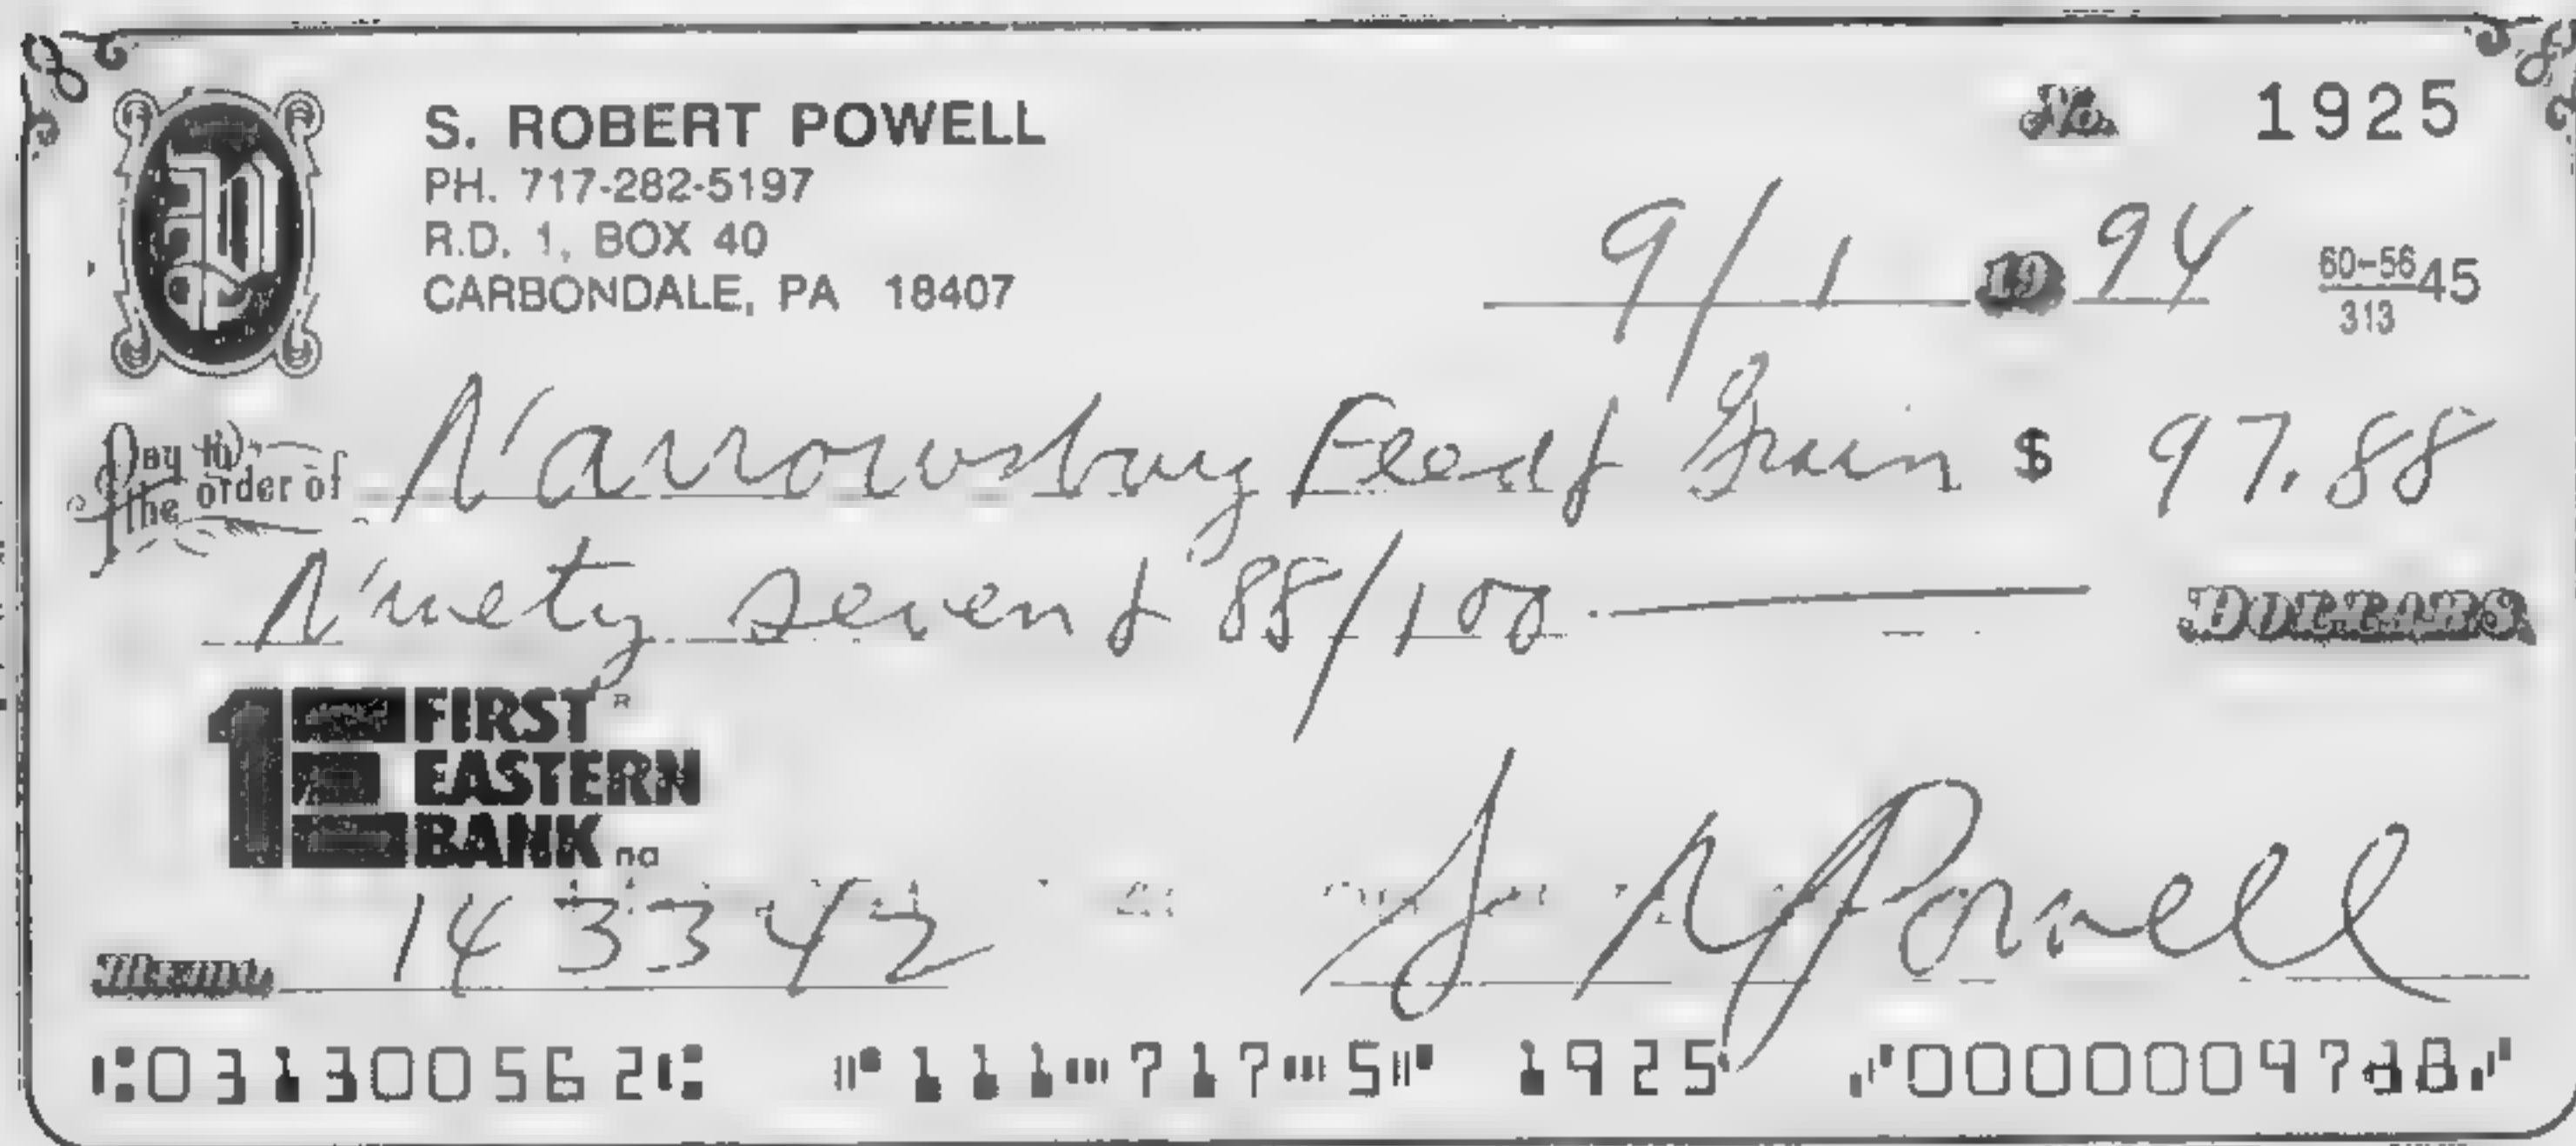 S. ROBERT POWELL
PH. 717-282-5197
R.D. 1, BOX 40
CARBONDALE, PA 18407
No. 1925
9/1 19 94
60-56 45
313
Pay to the order of Narrowsburg Feed & Grain $ 97.88
Ninety seven & 88/100 DOLLARS
1E FIRST
EASTERN
BANK na
Memo 143342
S R Powell
⑆031300562⑆ ⑈111⑉717⑉5⑈ 1925 ⑇0000009788⑇